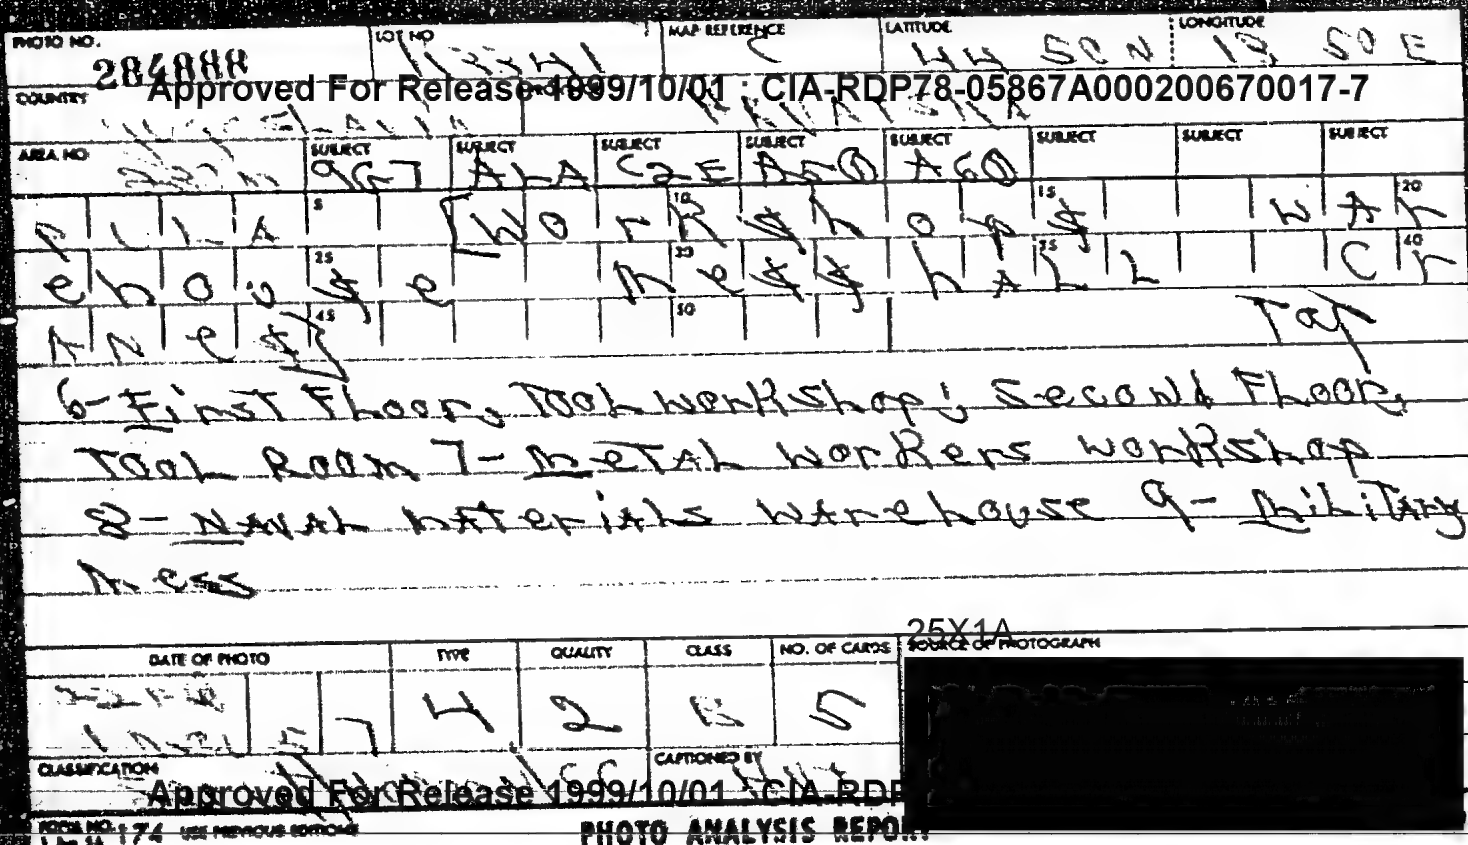 PHOTO NO. LOT NO MAP REFERENCE LATITUDE LONGITUDE
284888 C 44 50 N 13 50 E
Approved For Release 1999/10/01 : CIA-RDP78-05867A000200670017-7
COUNTRY
AREA NO SUBJECT SUBJECT SUBJECT SUBJECT SUBJECT SUBJECT SUBJECT SUBJECT
9G7 ALA C2E A50 A60
5 10 15 20
PULA [Workshops WAr
25 30 35 40
ehouse Mess hALL Cr
45 50
ANes] Tat
6- First Floor, Tool workshop; second Floor,
Tool Room 7- MeTAL workers workshop
8- NAVAL MATeriALs wArehouse 9- MiLiTAry
Mess
25X1A
DATE OF PHOTO TYPE QUALITY CLASS NO. OF CARDS SOURCE OF PHOTOGRAPH
4 2 5
57
CLASSIFICATION CAPTIONED BY
Approved For Release 1999/10/01 CIA-RDP
FORM NO. 174 USE PREVIOUS EDITIONS PHOTO ANALYSIS REPORT